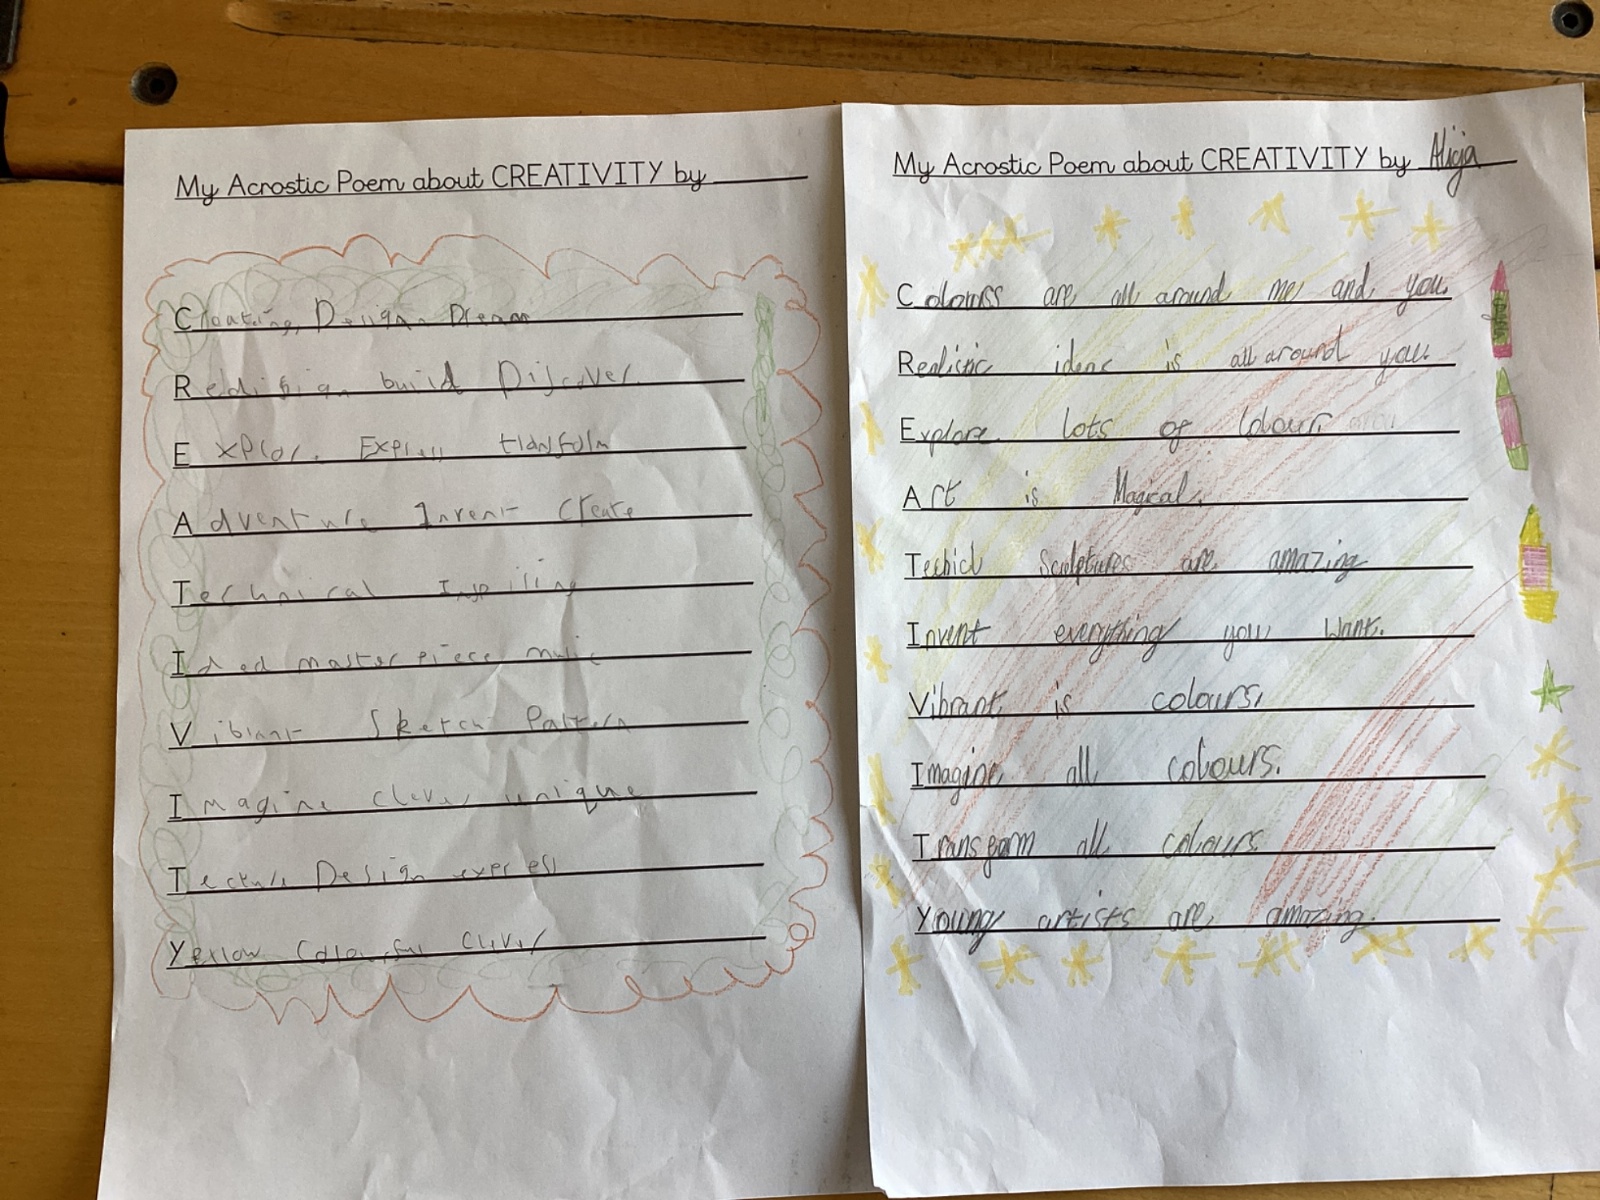 My Acrostic Poem about CREATIVITY by
Creating, Design, Dream
Redisign build Discover.
Explor. Express
Adventure Invent Create
Technical
master piece music
Vibrant Sketch Pattern
Imagine clever unique
Design express
Yellow clever
My Acrostic Poem about CREATIVITY by Alicja
are all around me and you.
Realistic ideas is all around you.
Explore lots of colour.
Art is Magical.
Sculptures are amazing
Invent everything you want.
Vibrant is colours.
Imagine all colours.
Transform all colours.
Young artists are amazing.